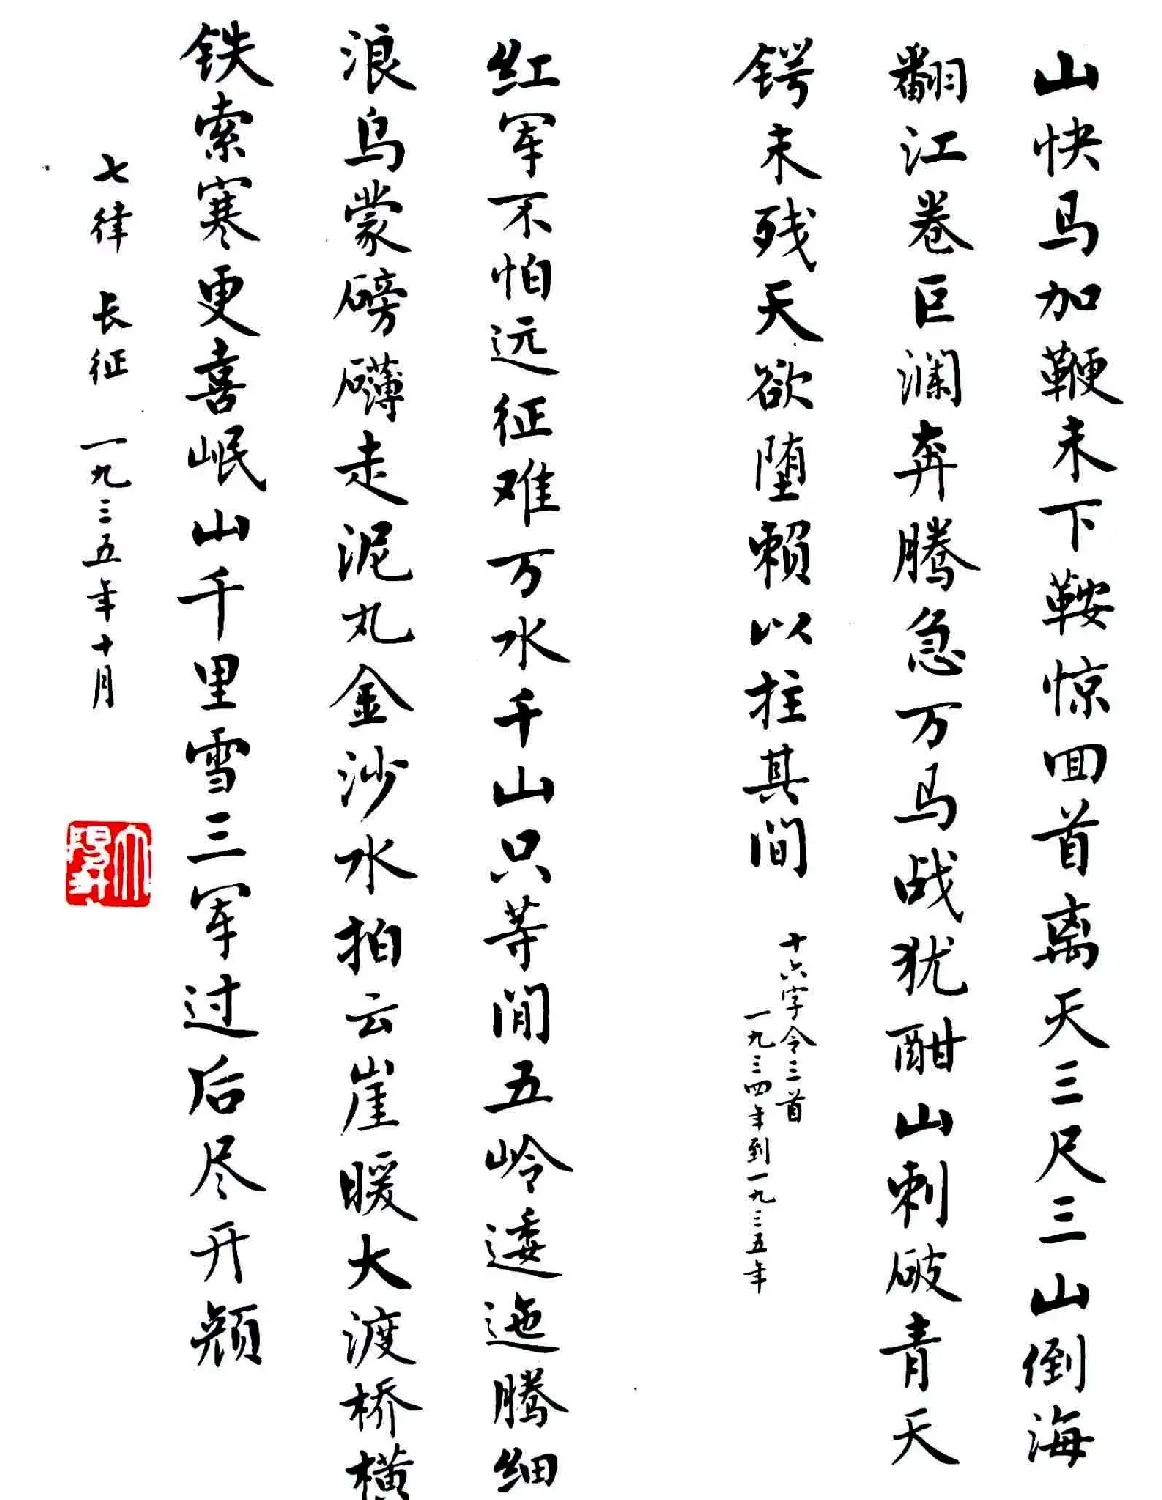 山快马加鞭未下鞍惊回首离天三尺三山倒海
翻江卷巨澜奔腾急万马战犹酣山刺破青天
锷未残天欲堕赖以拄其间
十六字令三首
一九三四年到一九三五年
红军不怕远征难万水千山只等闲五岭逶迤腾细
浪乌蒙磅礴走泥丸金沙水拍云崖暖大渡桥横
铁索寒更喜岷山千里雪三军过后尽开颜
七律 长征 一九三五年十月